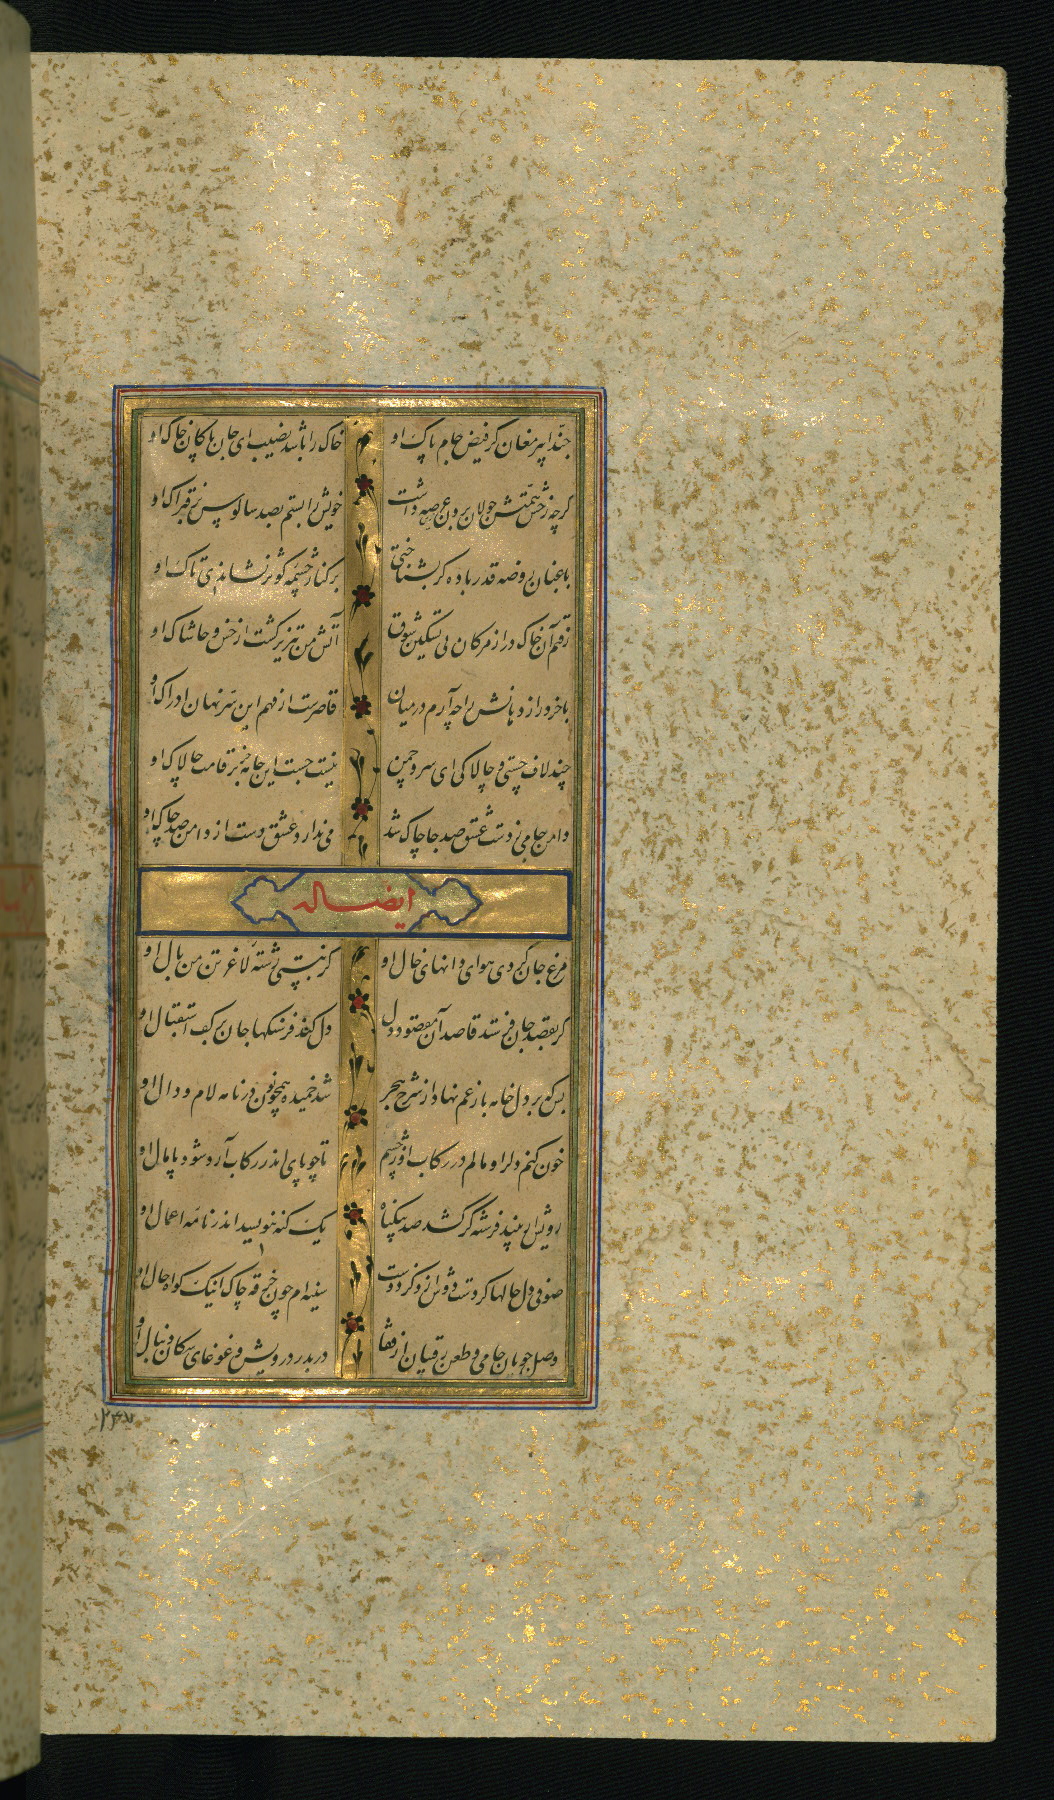 حبذا پیر مغان کز فیض جام پاک او
خاک را باشد نصیب ای جان ما کان خاک او
کرچه رخش همتش جولان برون عرصه داشت
خویش را بستم بصد سالوس بر فتراک او
باغبان روضه قدر باده کر بشناختی
بر کنار چشمه کوثر نشاندی تاک او
رفتم آن خاک در از مژکان پی تسکین شوق
آتش من تیزتر کشت از خس و خاشاک او
با خرد راز دهانش را چه آرم در میان
قاصرست از فهم این سر نهان ادراک او
چند لاف چستی و چالاکی ای سرو چمن
نیست چست این جامه جز بر قامت چالاک او
دامن جامی ز دست عشق صد جا چاک شد
می ندارد عشق دست از دامن صد چاک او
ایضا له
مرغ جان کردی هوای دانهای خال او
کر نبستی رشته لاغر تن من بال او
کر بقصد جان فرستد قاصد آن مقصود دل
دل کند فرسنکها جان بر کف استقبال او
بس که بر دل خامه بار غم نهاد از شرح هجر
شد خمیده همچو نون در نامه لام و دال او
خون کنم دل را و مالم در رکاب او ز چشم
تا چو پای اندر رکاب آرد شود پامال او
رویش ار بیند فرشته کر کشد صد بیکناه
یک کنه ننویسد اندر نامه اعمال او
صوفی دل حالها کردست دوش از ذکر دوست
سینه ام چون خرقه چاک اینک کواه حال او
وصل جویان جامی و طعن رقیبان از قفا
در بدر درویش و غوغای سکان دنبال او